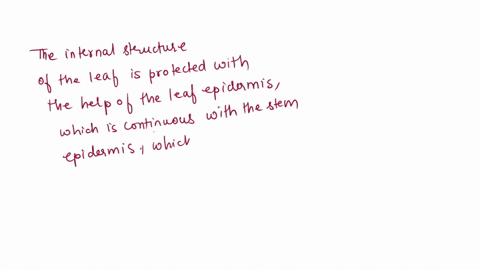 The internal structure
of the leaf is protected with
the help of the leaf epidermis,
which is continuous with the stem
epidermis, which